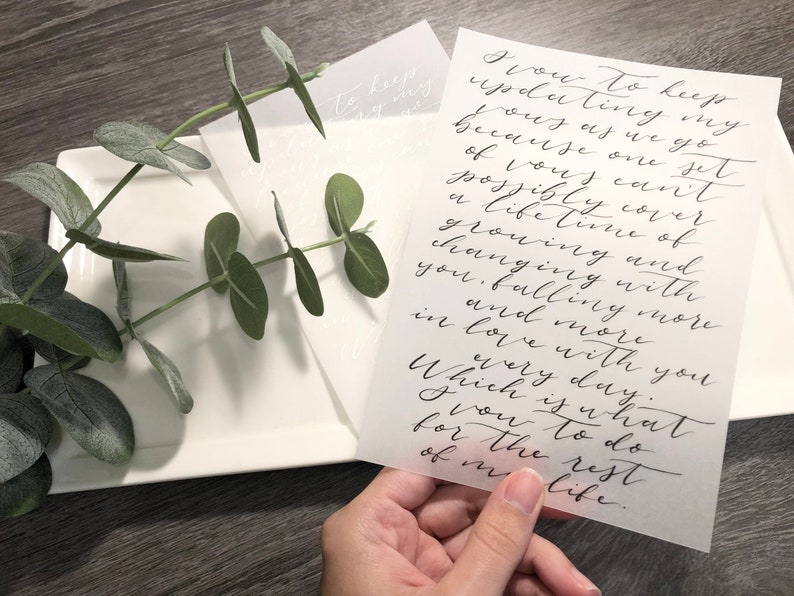 I vow to keep
updating my
vows as we go
because one set
of vows can't
possibly cover
a lifetime of
growing and
changing with
you, falling more
and more
in love with you
every day.
Which is what
I vow to do
for the rest
of my life.
to keep
updating my